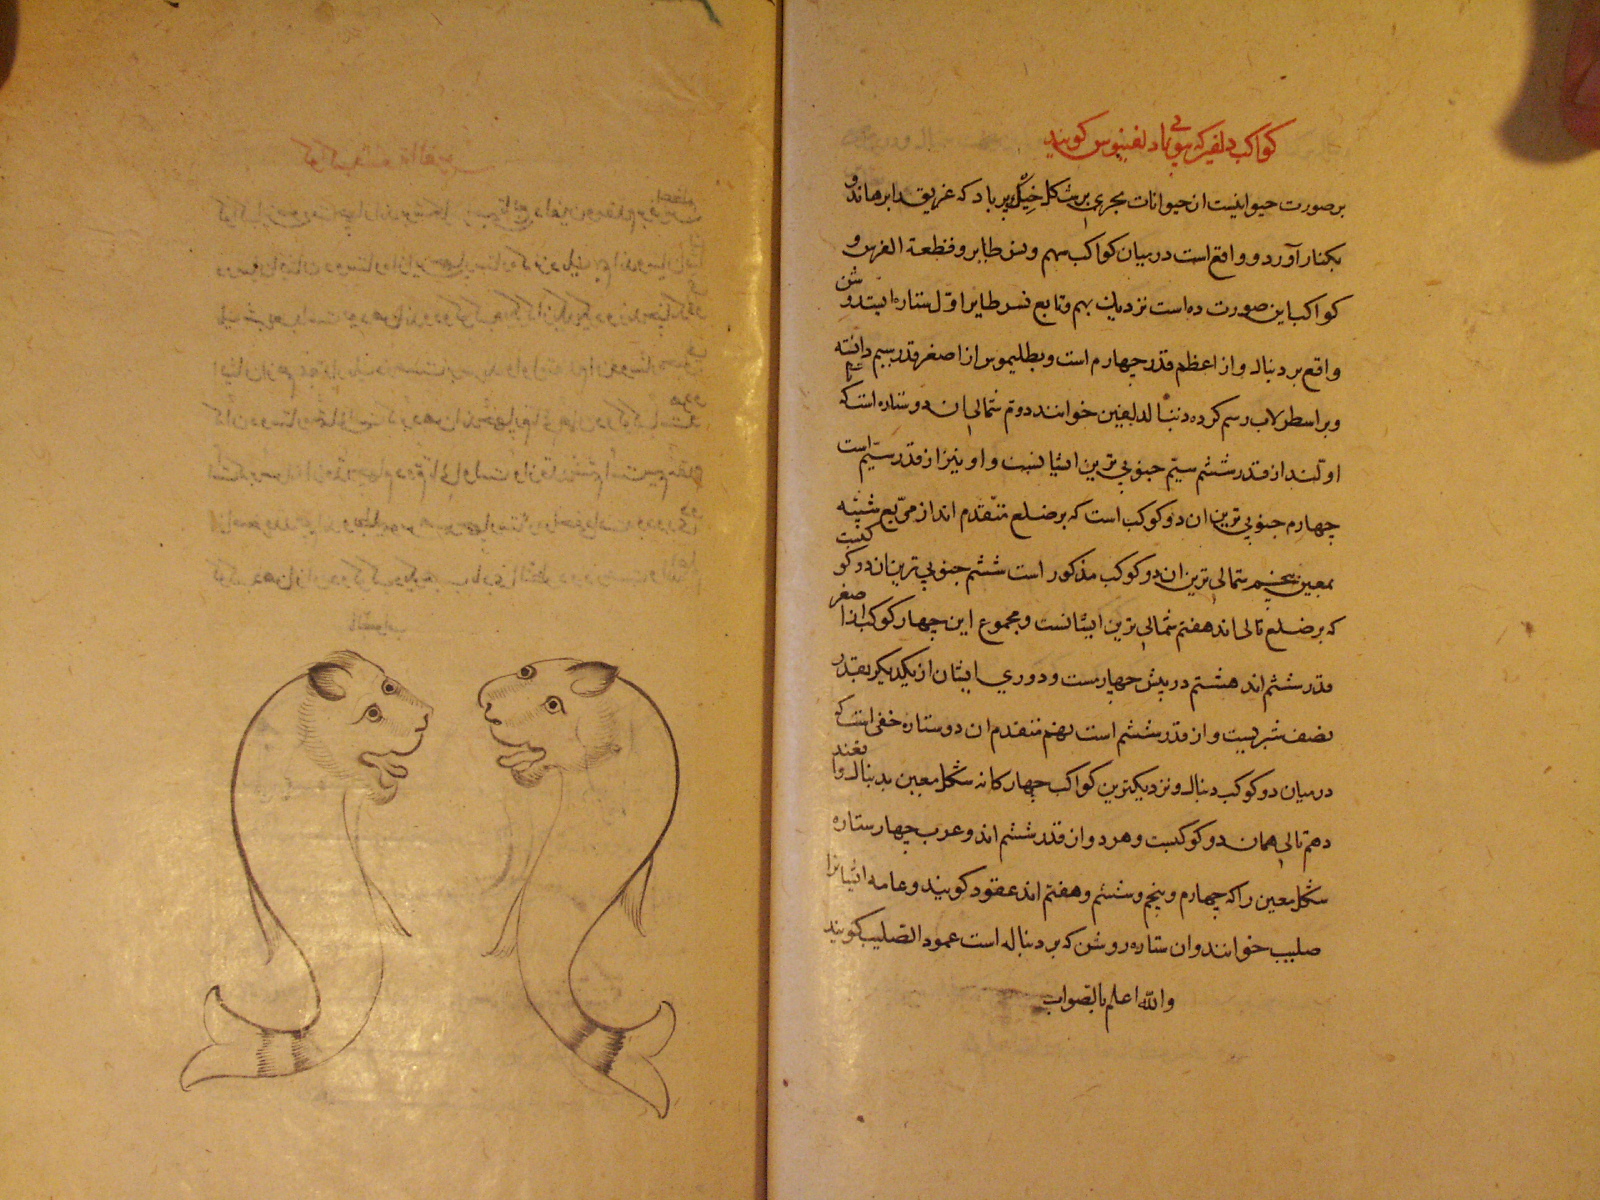 کواکب دلفین که یونانی دلفینوس کویند
برصورت حیوانیست از حیوانات بحری برشکل خیک پرباد که غریق را برهاند و
بکنار آورد و واقع است درمیان کواکب سهم و نسر طایر و قطعة الفرس و
کواکب این صورت ده است نزدیک بهم و تابع نسر طایر اوّل ستاره ایست روشن
واقع بر دنبال و از اعظم قدر چهارم است و بطلیموس از اصغر قدر سیم دانسته
و بر اسطرلاب رسم کرده دنبال الدلفین خوانند دوم شمالی ان دو ستاره است که
اولند از قدر ششم سیّم جنوبی ترین ایشانست و او نیز از قدر سیّم است
چهارم جنوبی ترین ان دو کوکب است که بر ضلع متقدم اند از مربع شبیه
بمعین پنجم شمالی ترین ان دو کوکب مذکور است ششم جنوبی ترین ان دو کوکبست
که بر ضلع تالی اند هفتم شمالی ترین ایشانست و مجموع این چهار کوکب از اصغر
قدر ششم اند هشتم در پیش چهارمست و دوری ایشان از یکدیکر بقدر
نصف شبریست و از قدر ششم است نهم متقدم ان دو ستاره خفی است که
درمیان دو کوکب دنبال و نزدیکترین کواکب چهارکانه شکل معین بدنبال واقعند
دهم تالی همان دو کوکبست و هر دو از قدر ششم اند و عرب چهار ستاره
شکل معین را که چهارم و پنجم و ششم و هفتم اند عقود کویند و عامه ایشانرا
صلیب خوانند و ان ستاره روشن که بر دنباله است عمود الصلیب کویند
والله اعلم بالصواب